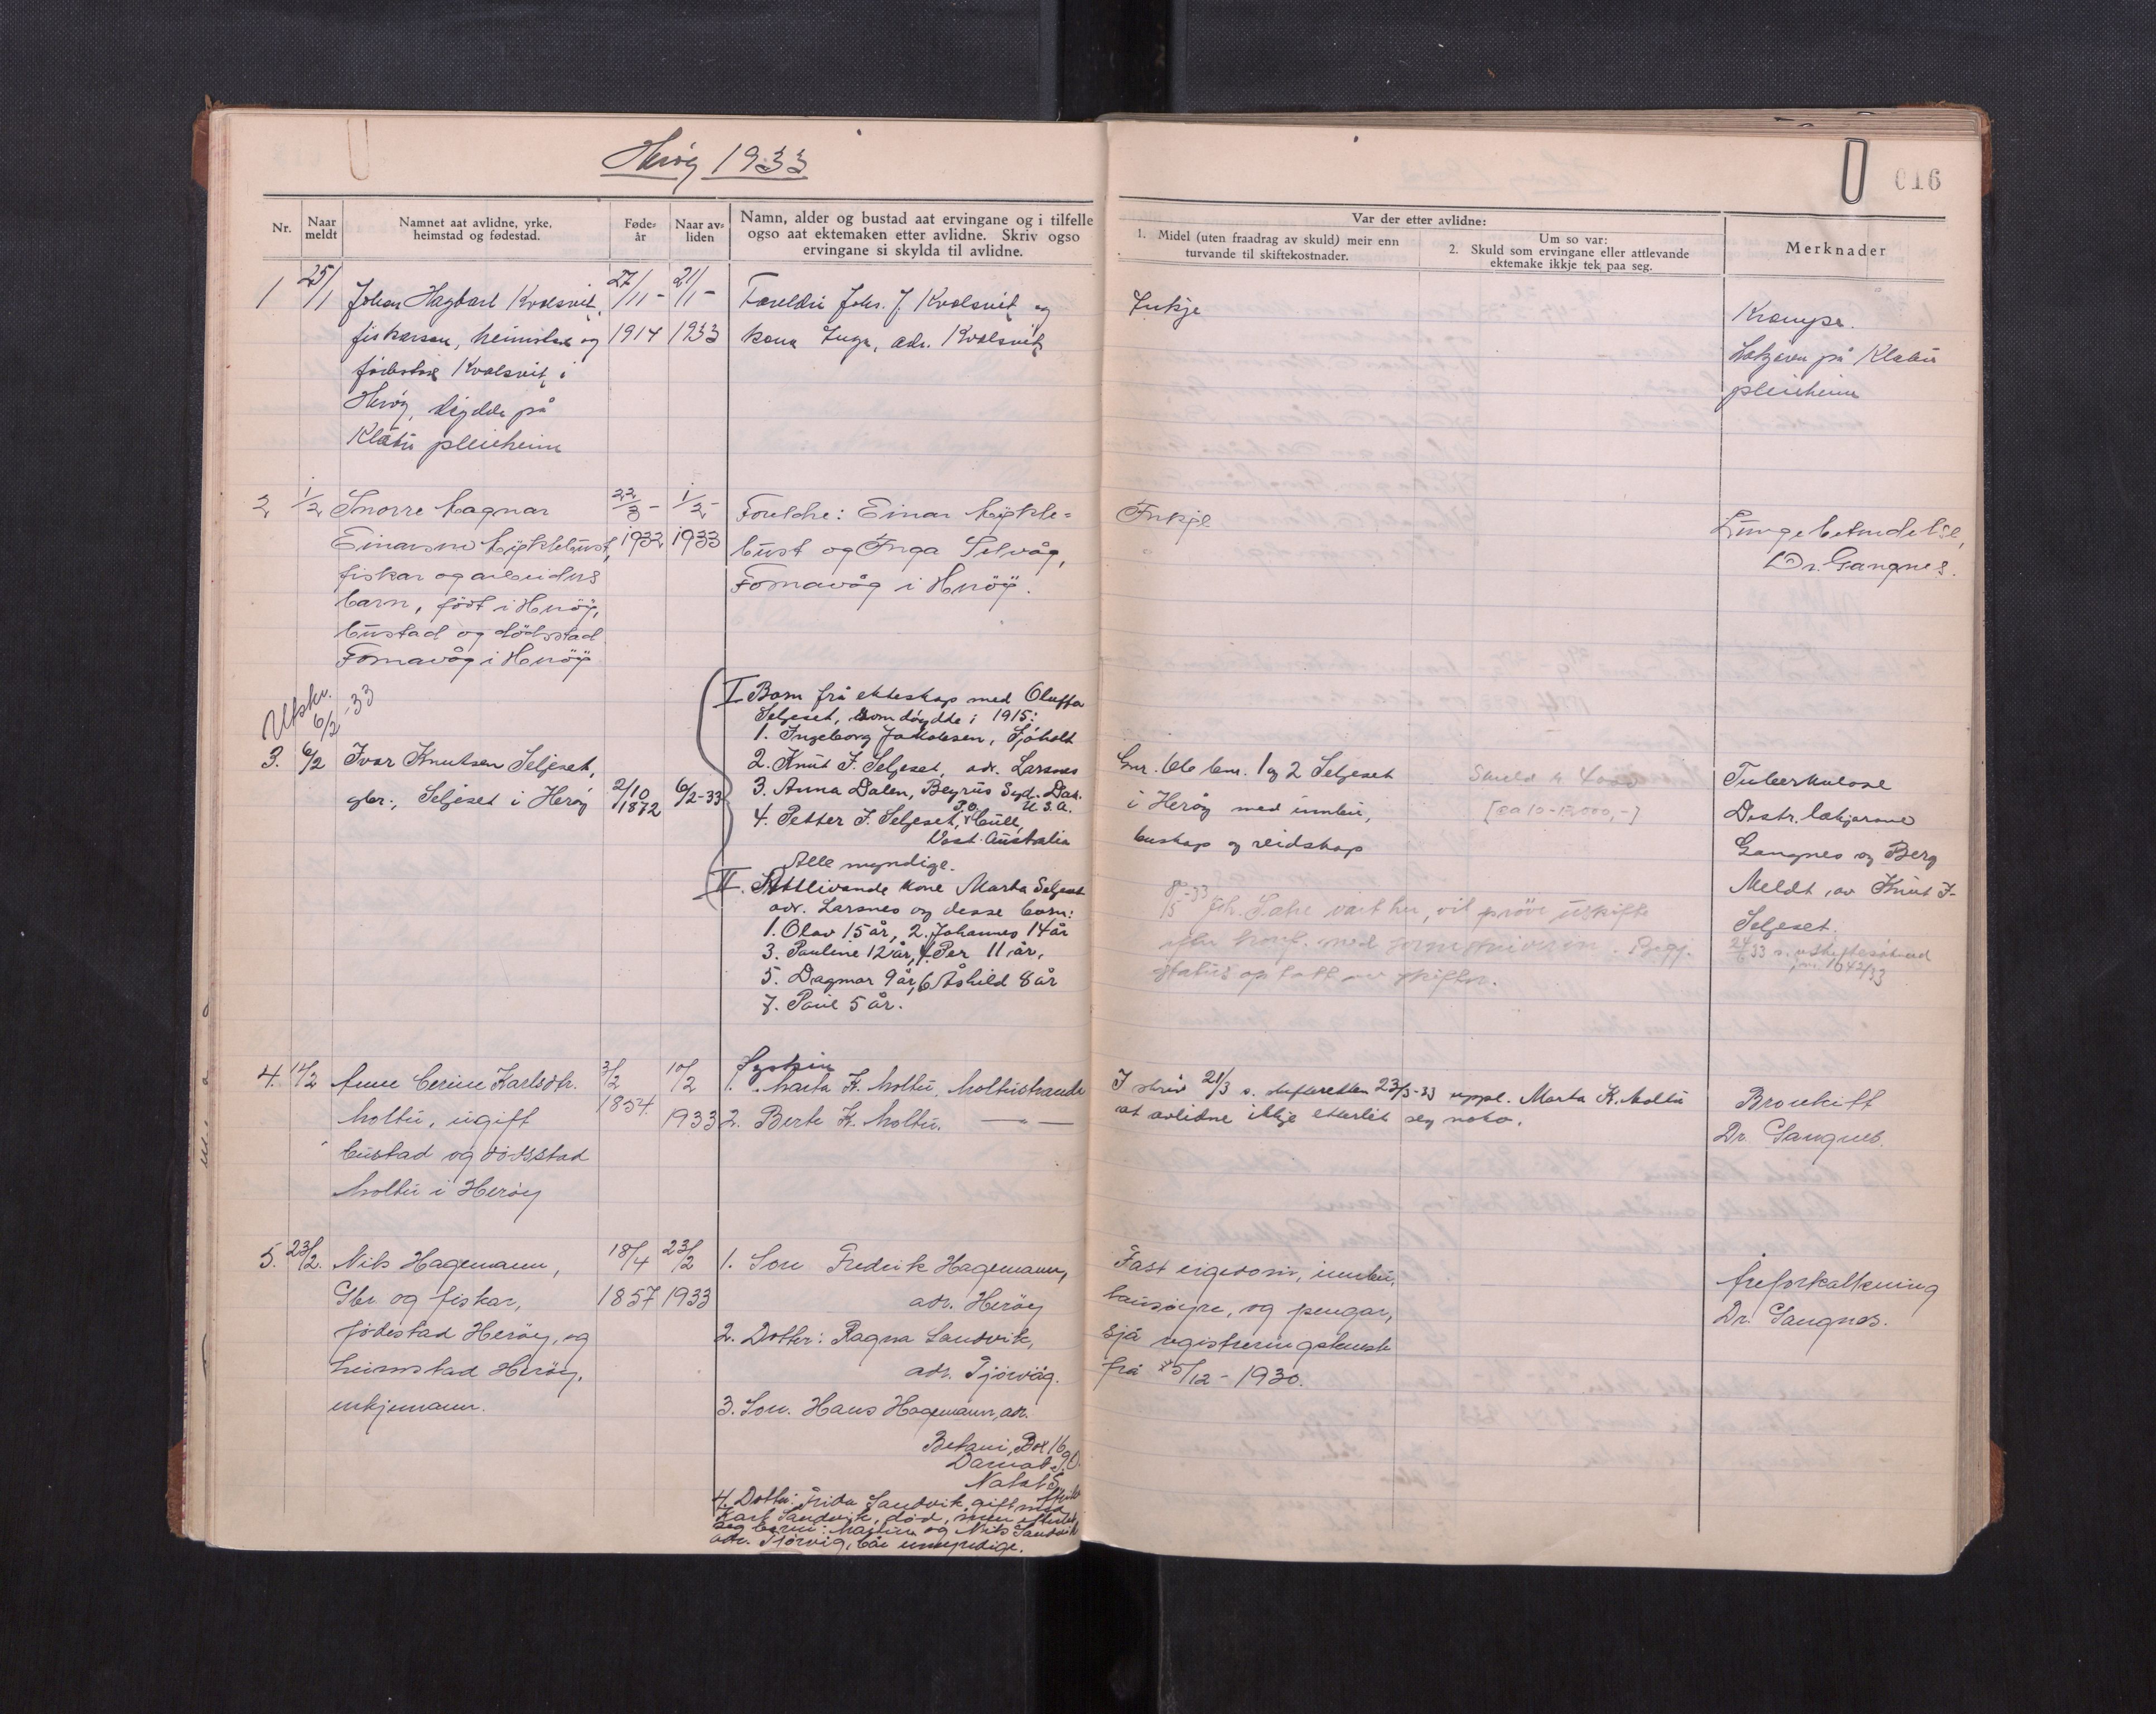 Herøy 1933
016
Nr.
Naar meldt
Namnet aat avlidne, yrke,
heimstad og fødestad.
Føde-
år
Naar av-
liden
Namn, alder og bustad aat ervingane og i tilfelle
ogso aat ektemaken etter avlidne. Skriv ogso
ervingane si skylda til avlidne.
Var der etter avlidne:
1. Midel (uten fraadrag av skuld) meir enn
turvande til skiftekostnader.
Um so var:
2. Skuld som ervingane eller attlevande
ektemake ikkje tek paa seg.
Merknader
1 25/1 Johan Hagbart Kvalsvik,
fiskarson, heimstad og
fødestad Kvalsvik i
Herøy, døydde på
Klåtu pleieheim
27/11 -
1914
21/1 -
1933
Foreldre Johs. J. Kvalsvik og
kona Inga, adr. Kvalsvik
Inkje
Krampe.
Lækjaren på Klåtu
pleieheim
2 1/2 Snorre Magnar
Einarson Myklebust,
fiskar og arbeidars
barn, født i Herøy,
bustad og dødsstad
Fosnavåg i Herøy
22/3 -
1932
1/2 -
1933
Foreldre: Einar Mykle=
bust og Inga Selvåg,
Fosnavåg i Herøy.
Inkje
Lungebetendelse,
Dr. Gangnes.
Utskr.
6/2 -33
3. 6/2 Ivar Knutsen Seljeset,
gbr., Seljeset i Herøy
2/10
1872
6/2-33
I. Born frå ekteskap med Oluffa
Seljeset, som døydde i 1915:
1. Ingeborg Jakobsen, Sjøholt
2. Knut I. Seljeset, adr. Larsnes
3. Anna Dalen, Syd. Dak.
U.S.A.
4. Petter I. Seljeset, P.O.
Vest Australia
Alle myndige.
II. Attlivande kone Marta Seljeset
adr. Larsnes og desse born:
1. Olav 15 år, 2. Johannes 14 år
3. Pauline 12 år, 4. Per 11 år,
5. Dagmar 9 år, 6 Åshild 8 år
7. Paul 5 år.
Gnr. bnr. 1 og 2 Seljeset
i Herøy med innbu,
buskap og reidskap
Skuld kr 4000
[ca 10-12,000,-]
vil prøve uskifte
Tuberkulose
Distr. lækjarane
Gangnes og Berg
Meldt av Knut I.
Seljeset.
4. 14/2 Anne Berine Karlsdtr.
Moltu, ugift
bustad og dødsstad
Moltu i Herøy
3/2
1854
10/2
1933
Syskin
1. Marta K. Moltu, Moltustranda
2. Berte K. Moltu. — " —
I skriv 21/3 s. skifteretten 23/3-33 uppl. Marta K. Moltu
at avlidne ikkje etterlet seg noko.
Bronkitt
Dr. Gangnes.
5. 23/2. Nils Hagemann,
Gbr. og fiskar,
fødestad Herøy, og
heimstad Herøy,
enkjemann.
18/4
1857
23/2
1933
1. Son Fredrik Hagemann,
adr. Herøy
2. Dotter: Ragna Sandvik,
adr. Tjørvåg.
3. Son. Hans Hagemann, adr.
Betani, Box 16
P.O.
Natal S.
Afrika
4. Dotter: Frida Sandvik, gift med
Karl Sandvik, død, men etterlet
seg born: og Nils Sandvik
adr. Tjørvåg, båe umyndige.
Fast eigedom, innbu,
lausøyre, og pengar,
sjå registreringsforretn.
frå 5/12 - 1930.
Åreforkalkning
Dr. Gangnes.